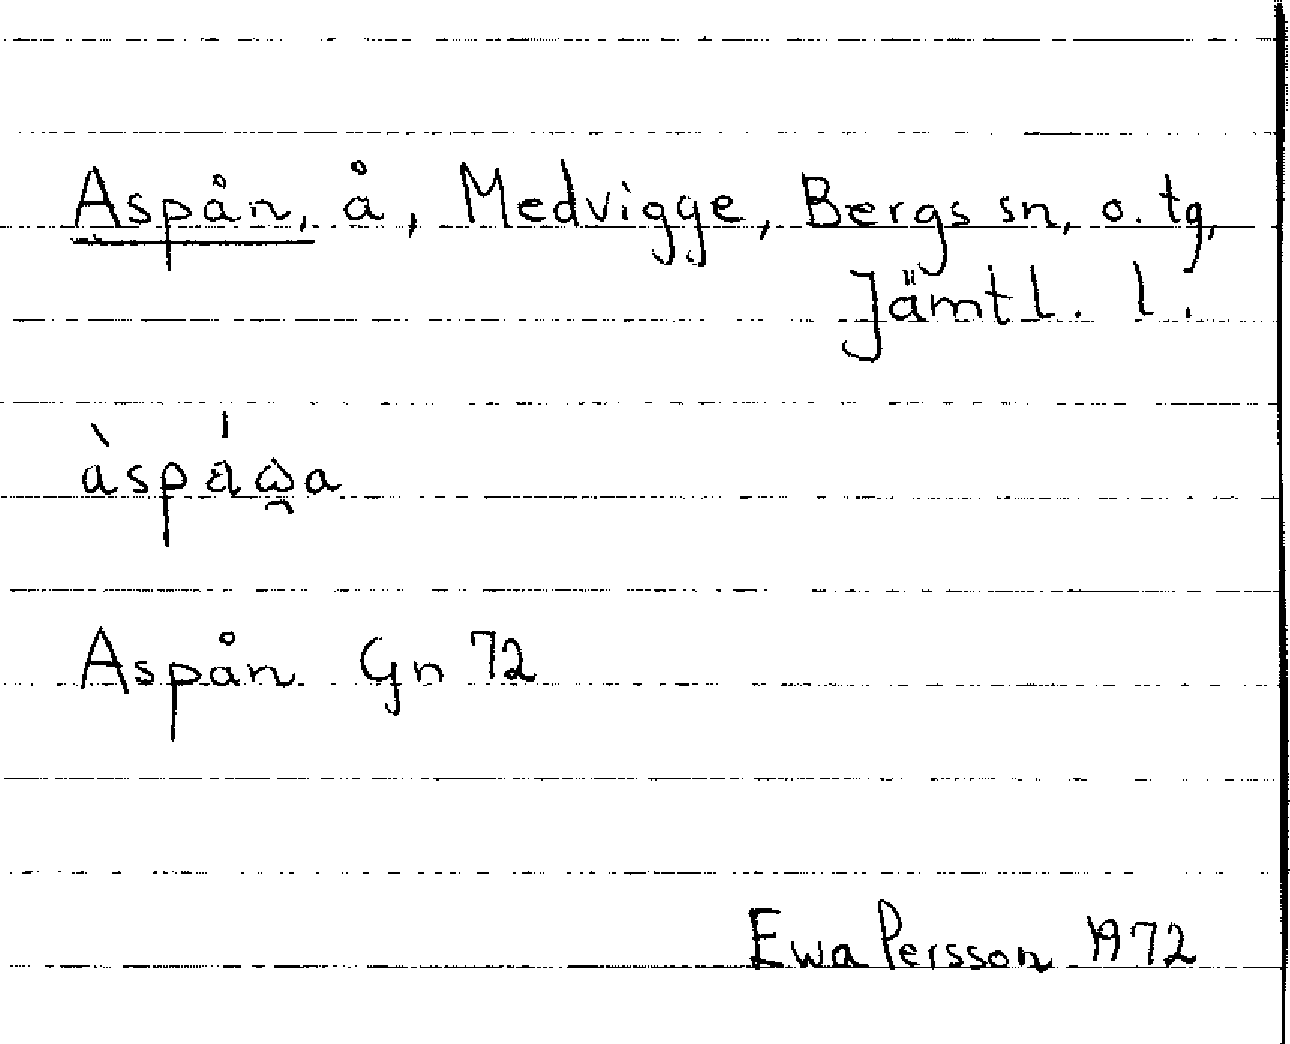 Aspån, å, Medvigge, Bergs sn, o. tg,
Jämtl. l.
Aspån Gn 72
Ewa Persson 1972